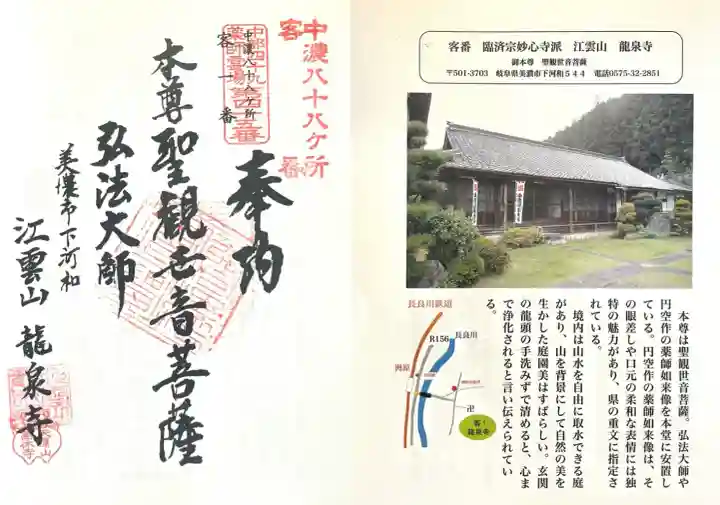 中濃八十八ヶ所
客
番
中濃八十八ヶ所
客一番
中部四十九
薬師霊場第四五番
奉納
本尊聖観世音菩薩
弘法大師
美濃市下河和
江雲山龍泉寺
客番 臨済宗妙心寺派 江雲山 龍泉寺
御本尊 聖観世音菩薩
〒501-3703 岐阜県美濃市下河和544 電話0575-32-2851
本尊は聖観世音菩薩。弘法大師や
円空作の薬師如来像を本堂に安置し
ている。円空作の薬師如来像は、そ
の眼差しや口元の柔和な表情には独
特の魅力があり、県の重文に指定さ
れている。
境内は山水を自由に取水できる庭
があり、山を背景にして自然の美を
生かした庭園美はすばらしい。玄関
の龍頭の手洗みずで清めると、心ま
で浄化されると言い伝えられてい
る。
長良川鉄道
R156
長良川
洲原
卍
客1
龍泉寺